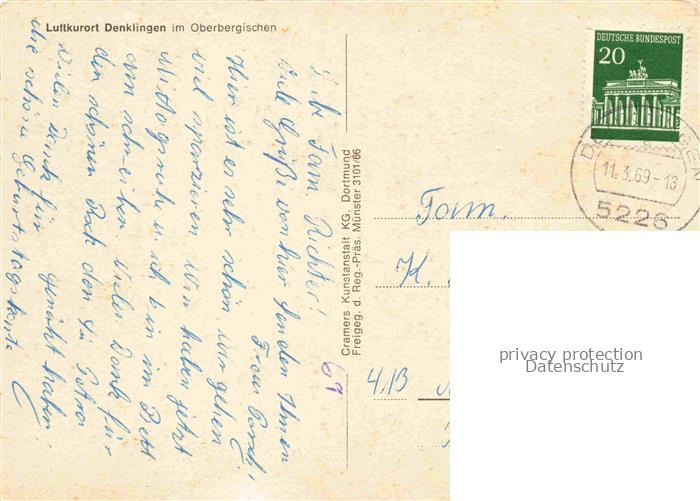 Luftkurort Denklingen im Oberbergischen
Liebe Fam. Richter!
viele Grüße von hier senden Ihnen
Frau
Hier ist es sehr schön, wir gehen
viel spazieren. Wir haben jetzt
Mittagsruhe u. ich bin im Bett
am schreiben. Vielen Dank für
den schönen Rock den Sie Petra
genäht haben.
Vielen Dank für
die schöne Geburtstagskarte
69
Cramers Kunstanstalt KG. Dortmund
Freigeg. d. Reg.-Präs. Münster 3101/66
DEUTSCHE BUNDESPOST
20
11.3.69-18
5226
Fam.
K.
413
privacy protection
Datenschutz